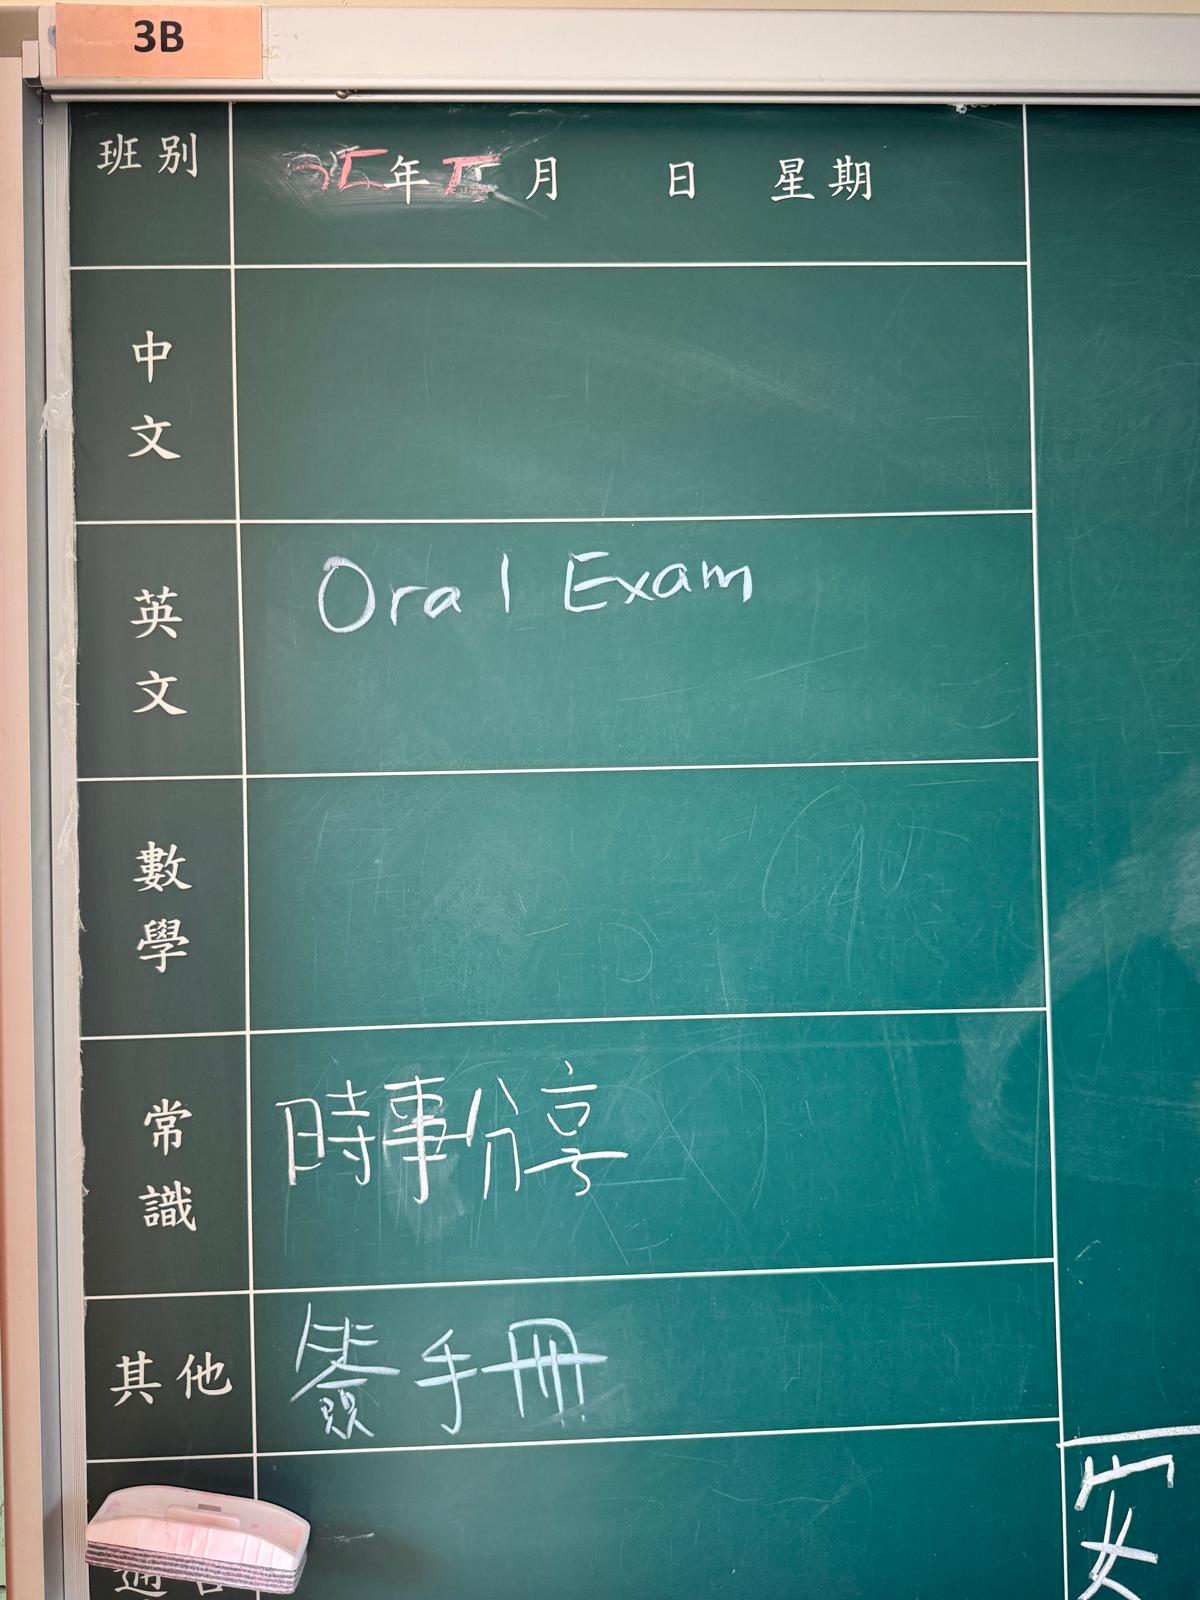 3B
班别 年 月 日 星期
中文
英文 Oral Exam
數學
常識 時事分享
其他 簽手冊
安